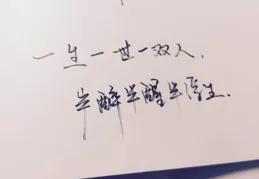 一生一世一双人，
半醉半醒半浮生.